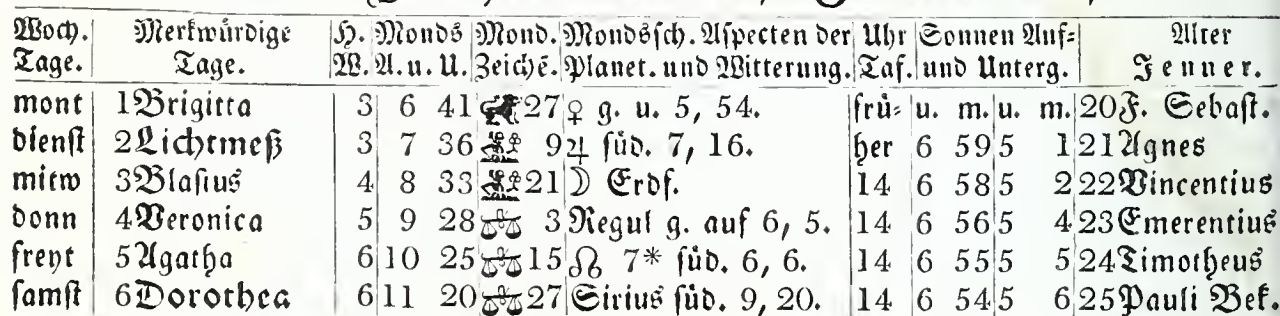 Woch. Merkwürdige H. Monds Mond. Mondssch. Aspecten der Uhr Sonnen Auf= Alter
Tage. Tage. W. A. u. U. Zeiche. Planet. und Witterung. Taf. und Unterg. Jenner.
mont 1 Brigitta 3 6 41 27 ♀ g. u. 5, 54. frü= u. m. u. m. 20 F. Sebast.
dienst 2 Lichtmeß 3 7 36 9 ♃ süd. 7, 16. her 6 59 5 1 21 Agnes
mitw 3 Blasius 4 8 33 21 ☽ Erdf. 14 6 58 5 2 22 Vincentius
donn 4 Veronica 5 9 28 3 Regul g. auf 6, 5. 14 6 56 5 4 23 Emerentius
freyt 5 Agatha 6 10 25 15 ☊ 7* süd. 6, 6. 14 6 55 5 5 24 Timotheus
samst 6 Dorothea 6 11 20 27 Sirius süd. 9, 20. 14 6 54 5 6 25 Pauli Bek.